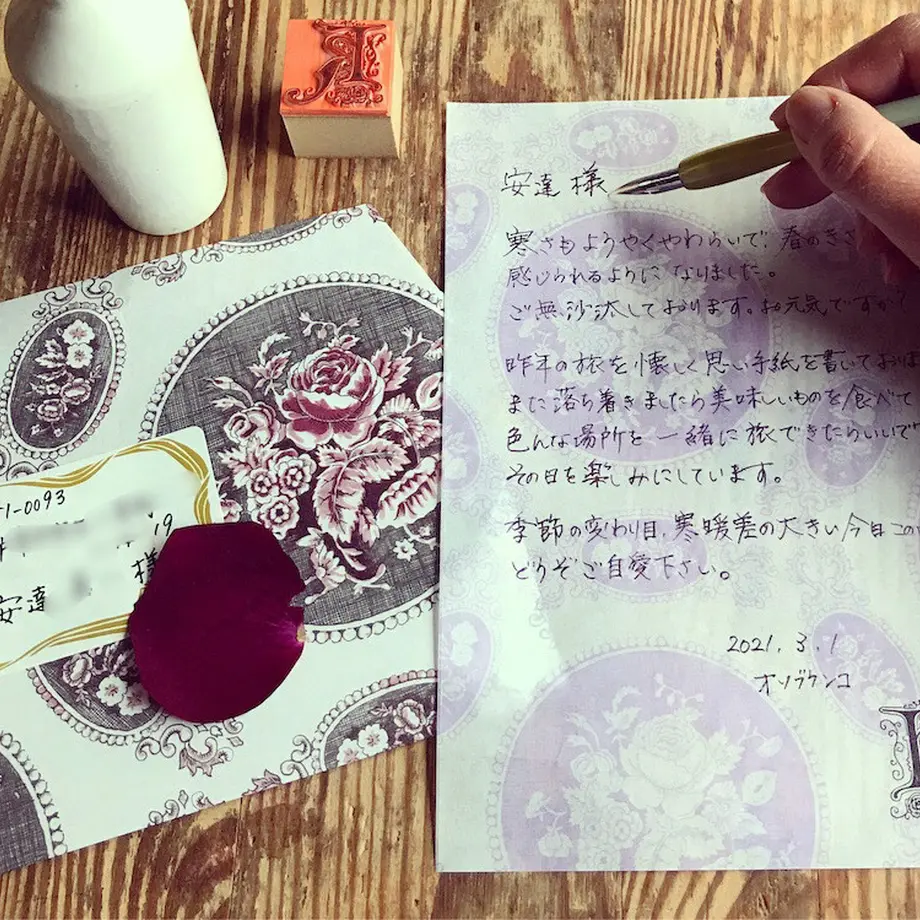 安達 様
寒さもようやくやわらいで、春のきざ
感じられるようになりました。
ご無沙汰しております。お元気ですか?
昨年の旅を懐しく思い手紙を書いており
また落ち着きましたら美味しいものを食べて
色んな場所を一緒に旅できたらいいで
その日を楽しみにしています。
季節の変わり目、寒暖差の大きい今日この
どうぞご自愛下さい。
2021.3.1
オソブケンコ
1-0093
19
安達
様